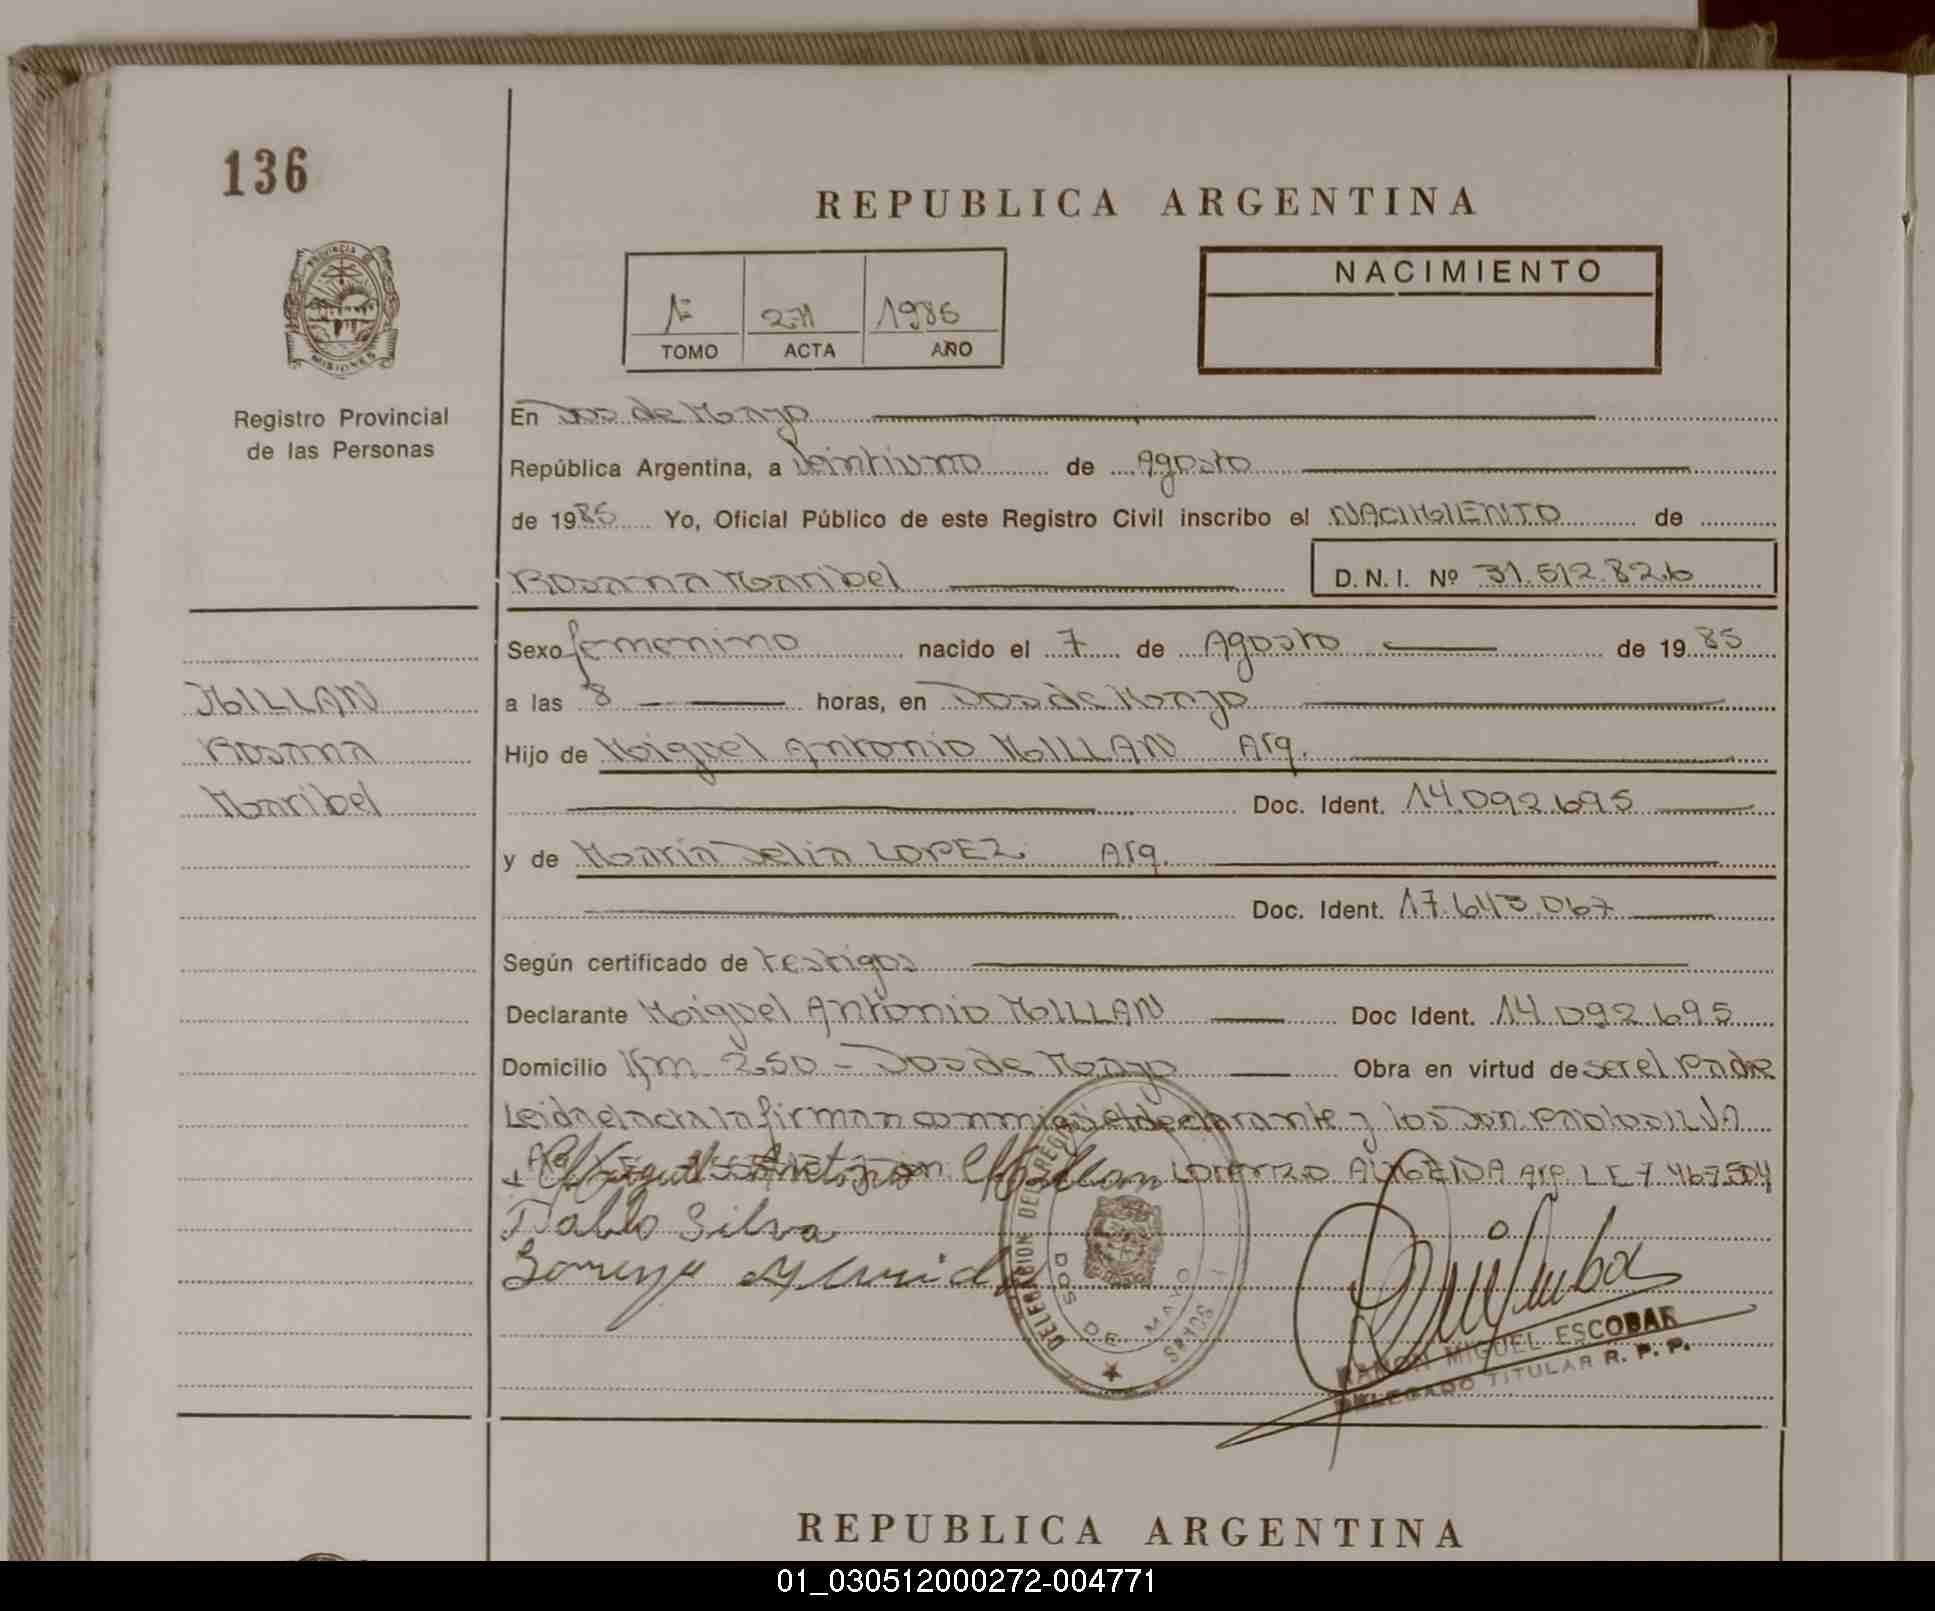 136
REPUBLICA ARGENTINA
NACIMIENTO
1º 271 1985
TOMO ACTA AÑO
PROVINCIA DE MISIONES
Registro Provincial
de las Personas
En Dos de Mayo
República Argentina, a Veintiuno de Agosto
de 1985 Yo, Oficial Público de este Registro Civil inscribo el NACIMIENTO de
Rosana Maribel D.N.I. Nº 31.512.826
Sexo femenino nacido el 7 de Agosto de 1985
a las 8 horas, en Dos de Mayo
MILLAN
Rosana
Maribel
Hijo de Miguel Antonio MILLAN Arg.
Doc. Ident. 14.092.695
y de María Delia LOPEZ Arg.
Doc. Ident. 17.643.067
Según certificado de testigos
Declarante Miguel Antonio MILLAN Doc Ident. 14.092.695
Domicilio Km 250 - Dos de Mayo Obra en virtud de ser el Padre
Leida el acta la firman conmigo el declarante y los Son Pablo SILVA
Miguel Antonio Millan Lorenzo ALMEIDA Arg. L E 7.467.504
Pablo Silva
Lorenzo Almeida
DELEGACION DEL REG
DOS DE MAYO
RAMON MIGUEL ESCOBAR
DELEGADO TITULAR R. P. P.
REPUBLICA ARGENTINA
01_030512000272-004771